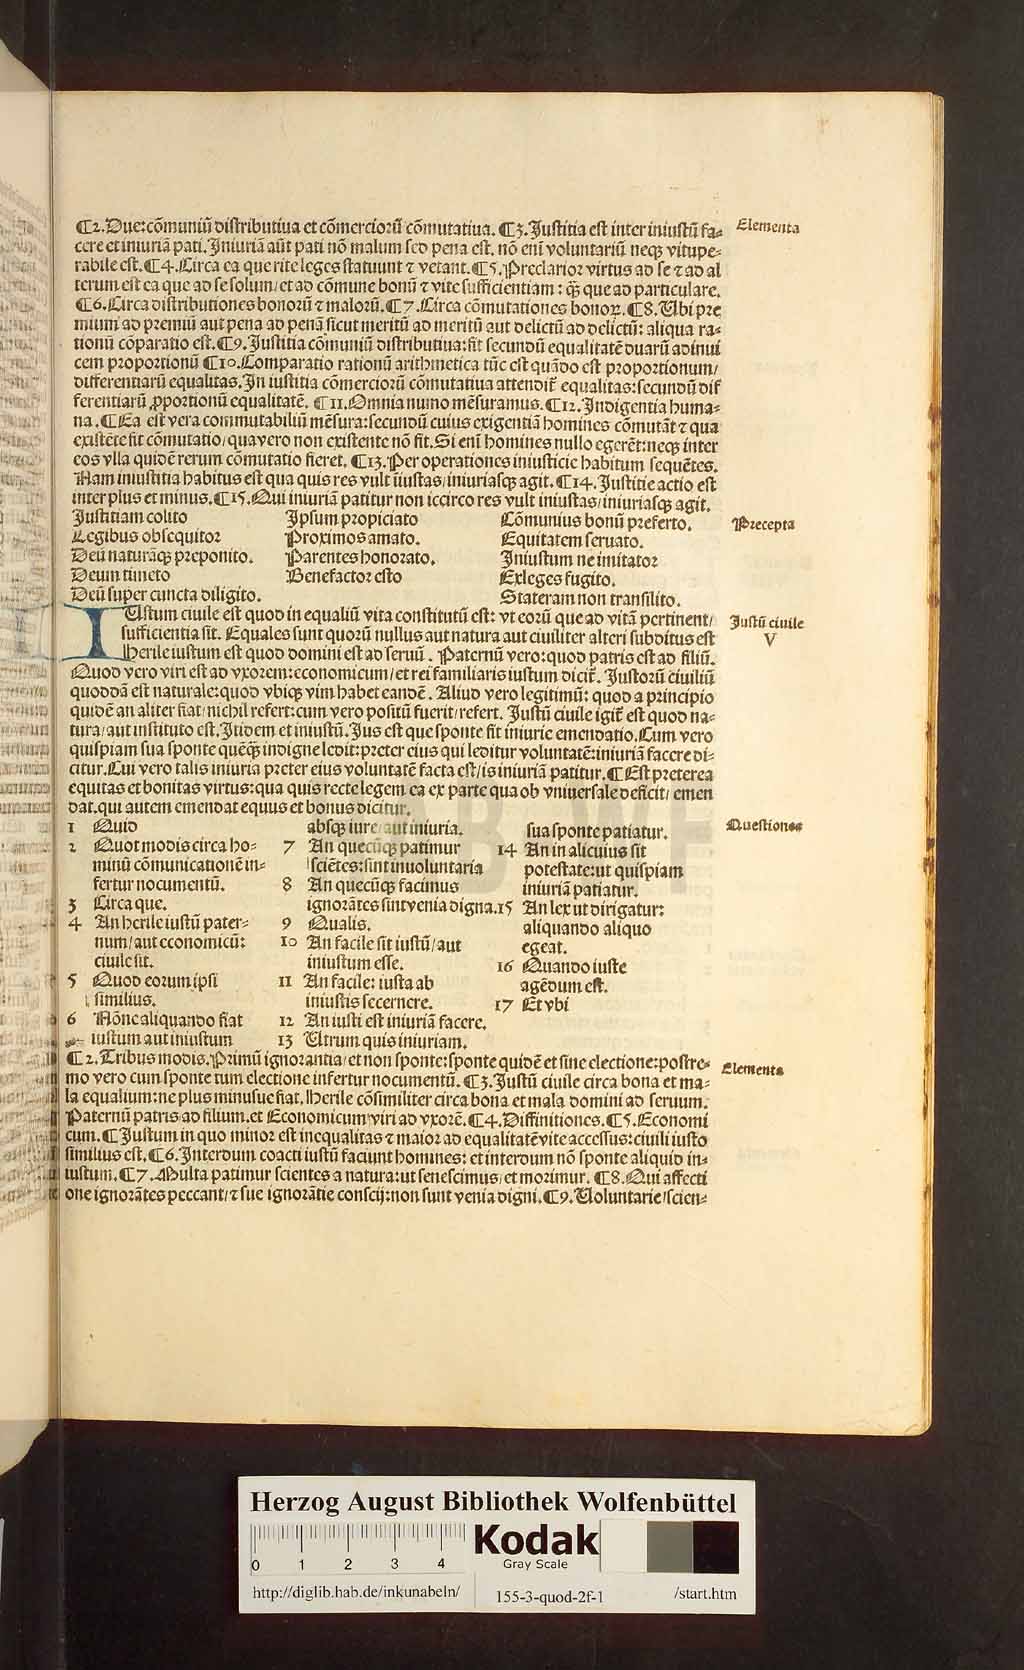 ¶2. Due: cõmuniũ distributiua et cõmerciorũ cõmutatiua. ¶3. Justitia est inter iniustũ fa-
Elementa
cere et iniuriã pati. Iniuriã aũt pati nõ malum sed pena est. nõ enĩ voluntariũ neqꝫ vitupe-
rabile est. ¶4. Circa ea que rite leges statuunt ⁊ vetant. ¶5. Preclarior virtus ad se ⁊ ad al
terum est ea que ad se solum/ et ad cõmune bonũ ⁊ vite sufficientiam: qꝫ̃ que ad particulare.
¶6. Circa distributiones bonorũ ⁊ malorũ. ¶7. Circa cõmutationes bonoꝝ. ¶8. Ubi pre
mium ad premiũ aut pena ad penã sicut meritũ ad meritũ aut delictũ ad delictũ: aliqua ra-
tionũ cõparatio est. ¶9. Justitia cõmuniũ distributiua: fit secundũ equalitatẽ duarũ adinui
cem proportionũ ¶10. Comparatio rationũ arithmetica tũc est quãdo est proportionum/
differentiarũ equalitas. In iustitia cõmerciorũ cõmutatiua attendit̃ equalitas: secundũ dif
ferentiarũ ꝓportionũ equalitatẽ. ¶11. Omnia numo mẽsuramus. ¶12. Indigentia huma-
na. ¶Ea est vera commutabiliũ mẽsura: secundũ cuius exigentiã homines cõmutãt ⁊ qua
existẽte fit cõmutatio/ qua vero non existente nõ fit. Si enĩ homines nullo egerẽt: neqꝫ inter
eos vlla quidẽ rerum cõmutatio fieret. ¶13. Per operationes iniusticie habitum sequẽtes.
Nam iniustitia habitus est qua quis res vult iiustas/ iniuriasqꝫ agit. ¶14. Justitie actio est
inter plus et minus. ¶15. Qui iniuriã patitur non iccirco res vult iniustas/ iniuriasqꝫ agit.
Justitiam colito
Ipsum propiciato
Cõmunius bonũ preferto.
Precepta
Legibus obsequitor
Proximos amato.
Equitatem seruato.
Deũ naturãqꝫ preponito.
Parentes honorato.
Iniustum ne imitator
Deum timeto
Benefactor esto
Exleges fugito.
Deũ super cuncta diligito.
Stateram non transilito.
IUstum ciuile est quod in equaliũ vita constitutũ est: vt eorũ que ad vitã pertinent/
Justũ ciuile
V
sufficientia sit. Equales sunt quorũ nullus aut natura aut ciuiliter alteri subditus est
Herile iustum est quod domini est ad seruũ. Paternũ vero: quod patris est ad filiũ.
Quod vero viri est ad vxorem: economicum/ et rei familiaris iustum dicit̃. Justorũ ciuiliũ
quoddã est naturale: quod vbiqꝫ vim habet eandẽ. Aliud vero legitimũ: quod a principio
quidẽ an aliter fiat/ nichil refert: cum vero positũ fuerit/ refert. Justũ ciuile igit̃ est quod na-
tura/ aut instituto est. Itidem et iniustũ. Jus est que sponte fit iniurie emendatio. Cum vero
quispiam sua sponte quẽqꝫ̃ indigne ledit: preter eius qui leditur voluntatẽ: iniuriã facere di-
citur. Cui vero talis iniuria preter eius voluntatẽ facta est/ is iniuriã patitur. ¶Est preterea
equitas et bonitas virtus: qua quis recte legem ea ex parte qua ob vniuersale deficit/ emen
dat. qui autem emendat equus et bonus dicitur.
Questiones
1 Quid
2 Quot modis circa ho-
minũ cõmunicationẽ in-
fertur nocumentũ.
3 Circa que.
4 An herile iustũ pater-
num/ aut economicũ:
ciuile sit.
5 Quod eorum ipsi
similius.
6 Nõne aliquando fiat
iustum aut iniustum
absqꝫ iure/ aut iniuria.
7 An quecũqꝫ patimur
sciẽtes: sint inuoluntaria
8 An quecũqꝫ facimus
ignorãtes sint venia digna.
9 Qualis.
10 An facile sit iustũ/ aut
iniustum esse.
11 An facile: iusta ab
iniustis secernere.
12 An iusti est iniuriã facere.
13 Utrum quis iniuriam.
sua sponte patiatur.
14 An in alicuius sit
potestate: ut quispiam
iniuriã patiatur.
15 An lex ut dirigatur:
aliquando aliquo
egeat.
16 Quando iuste
agẽdum est.
17 Et vbi
¶2. Tribus modis. Primũ ignorantia/ et non sponte: sponte quidẽ et sine electione: postre-
Elementa
mo vero cum sponte tum electione infertur nocumentũ. ¶3. Justũ ciuile circa bona et ma-
la equalium: ne plus minusue fiat. Herile cõsimiliter circa bona et mala domini ad seruum.
Paternũ patris ad filium. et Economicum viri ad vxorẽ. ¶4. Diffinitiones. ¶5. Economi
cum. ¶Justum in quo minor est inequalitas ⁊ maior ad equalitatẽ vite accessus: ciuili iusto
similius est. ¶6. Interdum coacti iustũ faciunt homines: et interdum nõ sponte aliquid in-
iustum. ¶7. Multa patimur scientes a natura: ut senescimus/ et morimur. ¶8. Qui affecti
one ignorãtes peccant/ ⁊ sue ignorãtie conscij: non sunt venia digni. ¶9. Voluntarie/ scien-
HAB WF
Herzog August Bibliothek Wolfenbüttel
0 1 2 3 4
Kodak
Gray Scale
http://diglib.hab.de/inkunabeln/
155-3-quod-2f-1
/start.htm